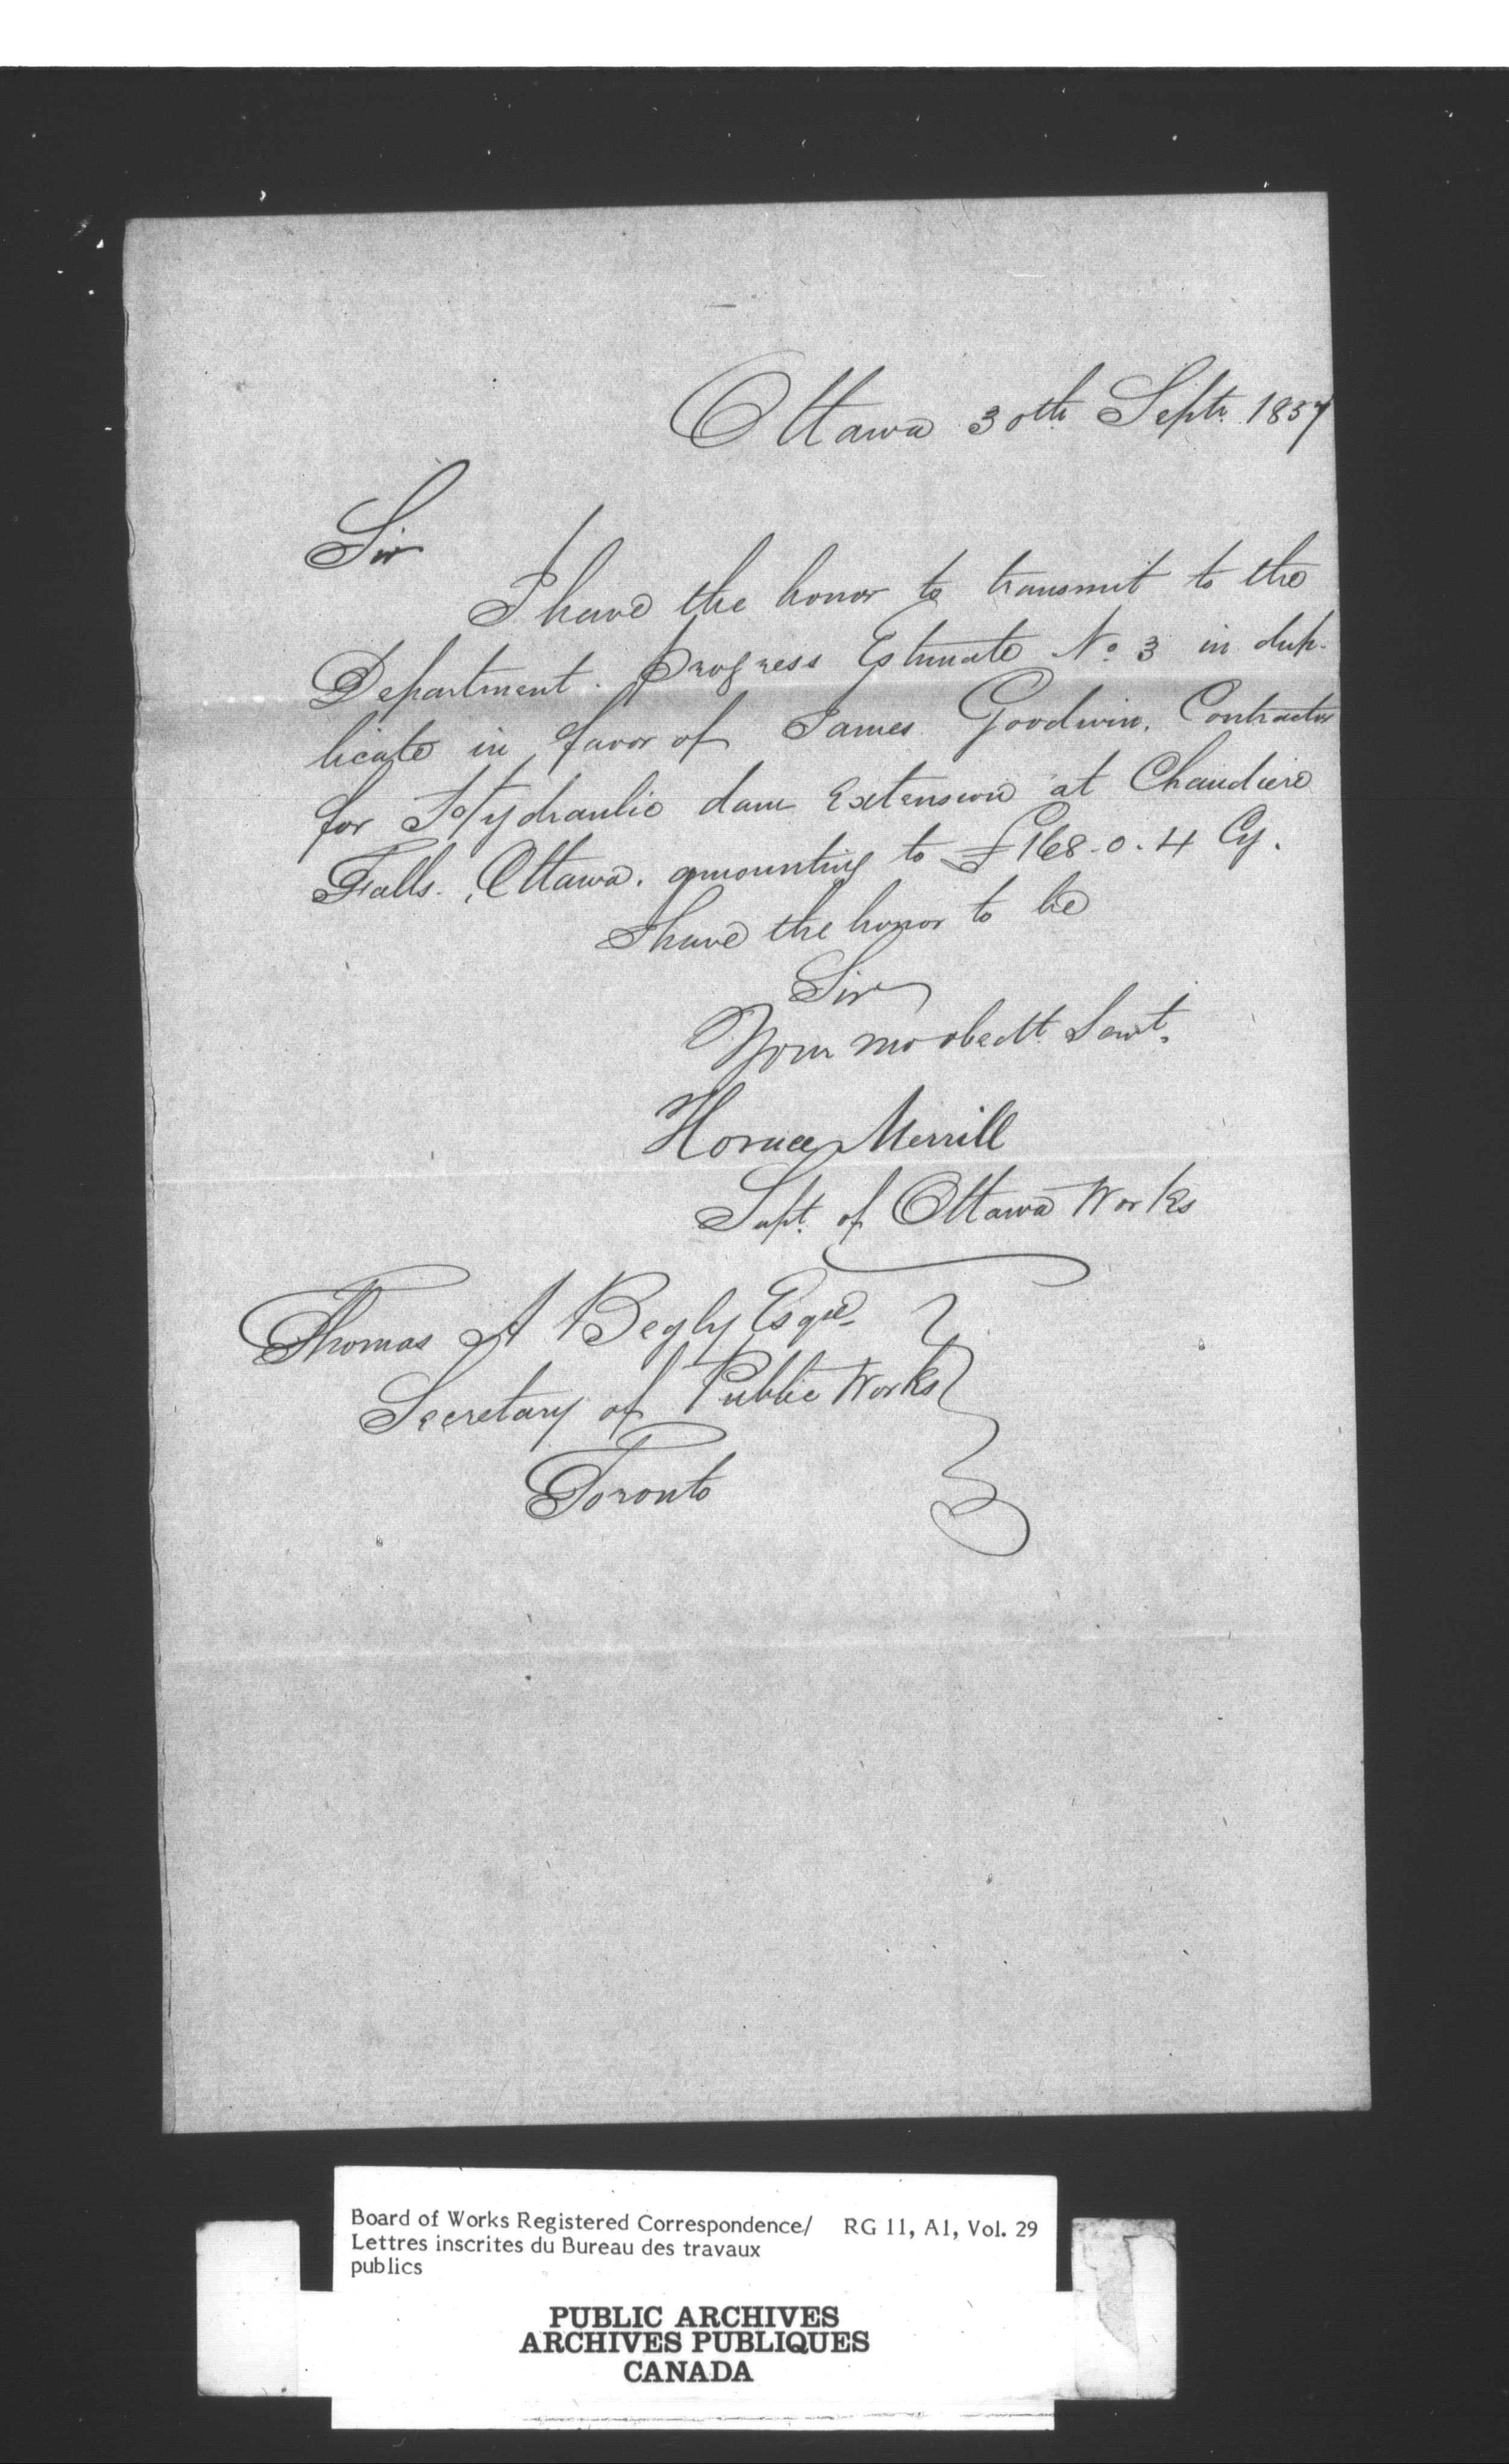 Ottawa 30th Septr. 1857
Sir
I have the honor to transmit to the
Department. Progress Estimate No. 3 in dup-
licate in favor of James Goodwin. Contractor
for Hydraulic dam Extension at Chaudiere
Falls. Ottawa. amounting to £168-0.4 Cy.
I have the honor to be
Sir
Your mo obedt. Servt.
Horace Merrill
Supt. of Ottawa Works
Thomas A Begly Esqre
Secretary of Public Works
Toronto
Board of Works Registered Correspondence/ RG 11, A1, Vol. 29
Lettres inscrites du Bureau des travaux
publics
PUBLIC ARCHIVES
ARCHIVES PUBLIQUES
CANADA